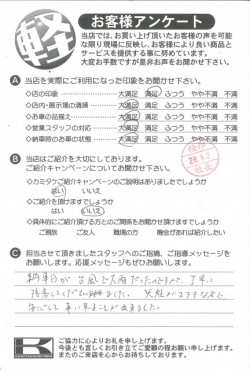 軽
お客様アンケート
当店では、お買い上げ頂いたお客様の声を可能
な限り現場に反映し、お客様により良い商品と
サービスを提供できる事に努めています。
大変お手数ですが是非お声をお聞かせ下さい。
A 当店を実際にご利用になった印象をお聞かせ下さい。
◇店の印象 大満足 満足 ふつう やや不満 不満
◇店内・展示場の清掃 大満足 満足 ふつう やや不満 不満
◇お車の品揃え 大満足 満足 ふつう やや不満 不満
◇営業スタッフの対応 大満足 満足 ふつう やや不満 不満
◇納車時のお車の状態 大満足 満足 ふつう やや不満 不満
B 当店はご紹介を大切にしております。
ご紹介キャンペーンについてお聞かせ下さい。
◇カミタケご紹介キャンペーンのご説明はありましたでしょうか
はい いいえ
◇ご紹介を頂けますでしょうか
はい いいえ
◇具体的にご紹介頂ける方とのご関係をお聞かせ頂けますでしょうか
ご親族 ご友人 職場の方 機会があれば紹介したい
C 担当させて頂きましたスタッフへのご指摘、ご指導メッセージを
お願いします。応援メッセージもぜひお願いします。
納車日が台風で大雨だったのですが、丁寧に
ました。
安心して車に乗ることが出来ました。
K
ご協力に心よりお礼を申し上げます。
今後とも宜しくお引き立てご愛顧の程お願い申し上げます。
またのご来店を心からお待ちしております。